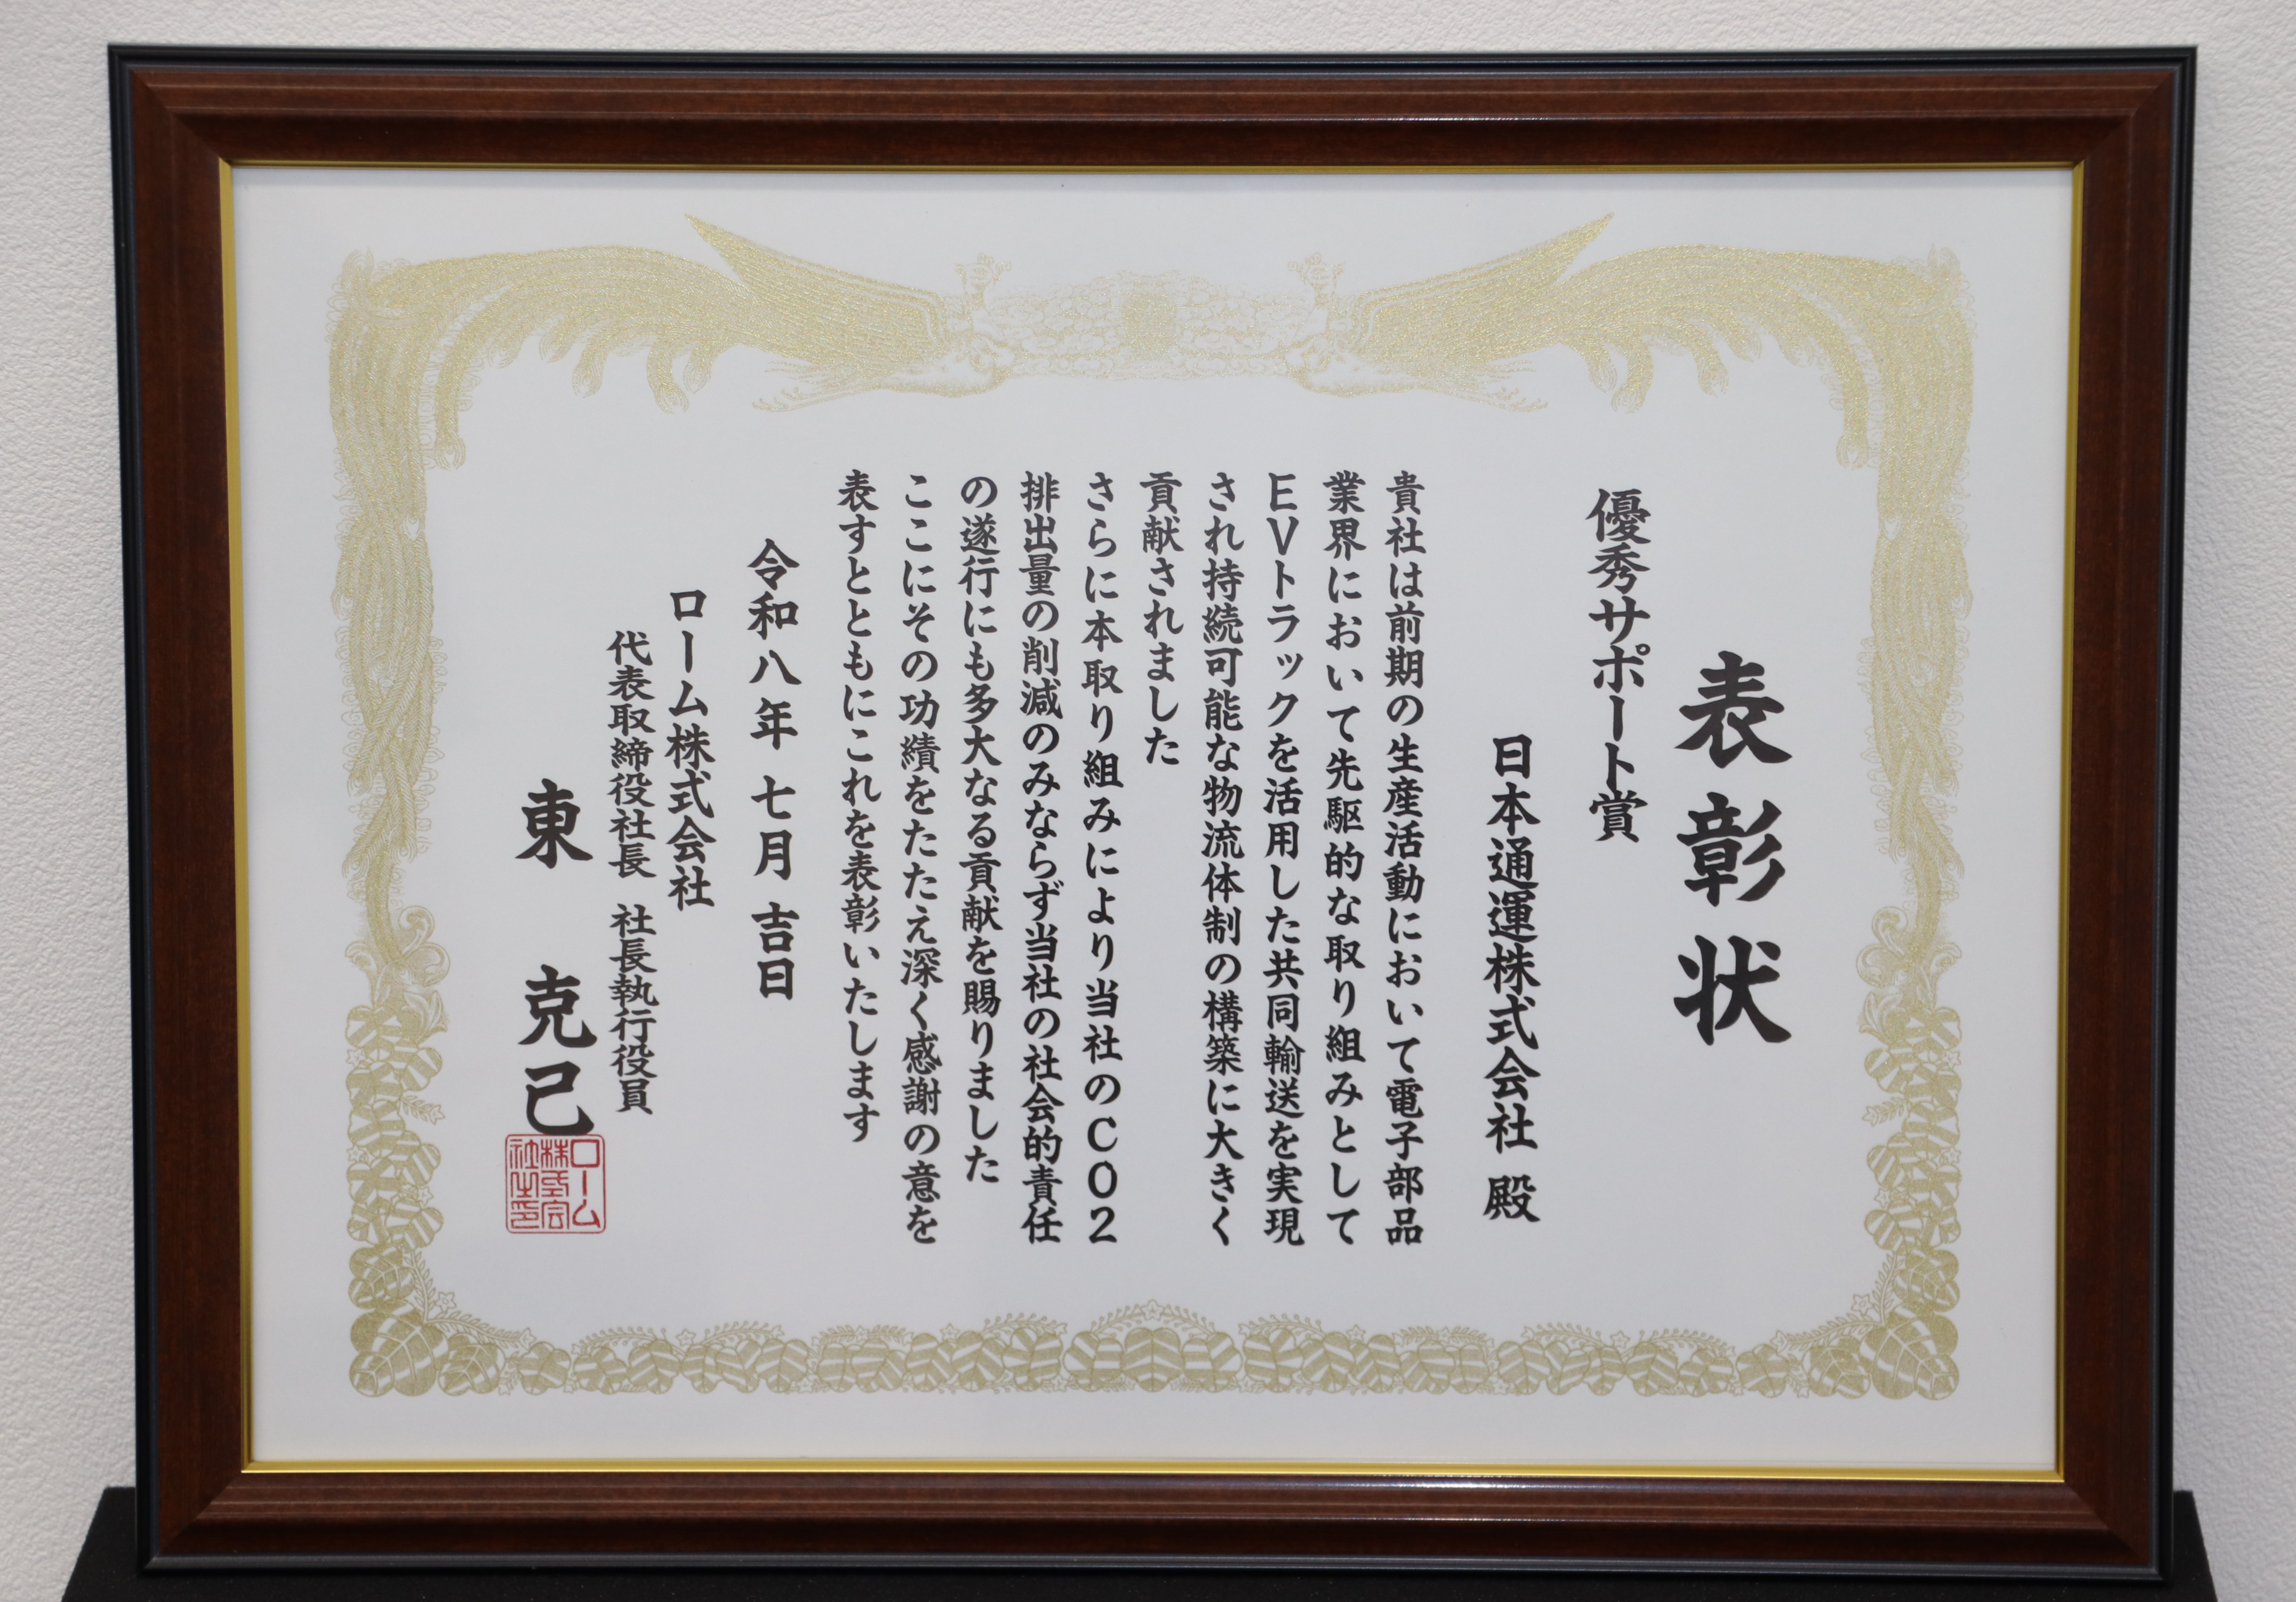 表彰状
優秀サポート賞
日本通運株式会社 殿
貴社は前期の生産活動において電子部品
業界において先駆的な取り組みとして
EVトラックを活用した共同輸送を実現
され持続可能な物流体制の構築に大きく
貢献されました
さらに本取り組みにより当社のCO2
排出量の削減のみならず当社の社会的責任
の遂行にも多大なる貢献を賜りました
ここにその功績をたたえ深く感謝の意を
表すとともにこれを表彰いたします
令和八年 七月 吉日
ローム株式会社
代表取締役社長 社長執行役員
東 克己
ローム
株式会
社之印